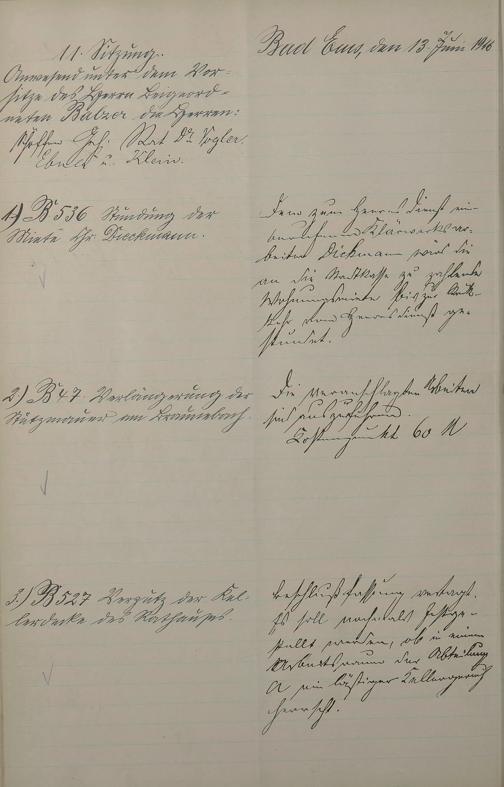 11. Sitzung.
Anwesend unter dem Vor-
sitze des Herrn Beigeord-
neten Balzer die Herren:
Schöffen Geh. Rat Dr. Vogler,
Ebner u. Klein.
Bad Ems, den 13. Juni 1916
1) B 536 Stundung der
Miete Chr. Dieckmann.
Dem zum Heeresdienst ein-
berufenen Klärwerksar-
beiter Dickmann wird die
an die Stadtkasse zu zahlende
Wohnungsmiete bis zur Rück-
kehr vom Heeresdienst ge-
stundet.
2) B 47 Verlängerung der
Stützmauer am Braunebach.
Die veranschlagten Arbeiten
sind auszuführen.
Kostenpunkt 60 M
3.) B 527 Verputz der Kel-
lerdecke des Rathauses.
Beschlußfassung vertagt.
Es soll nochmals festge-
stellt werden, ob in einem
Arbeitsraum der Abteilung
A ein lästiger Kellergeruch
herrscht.